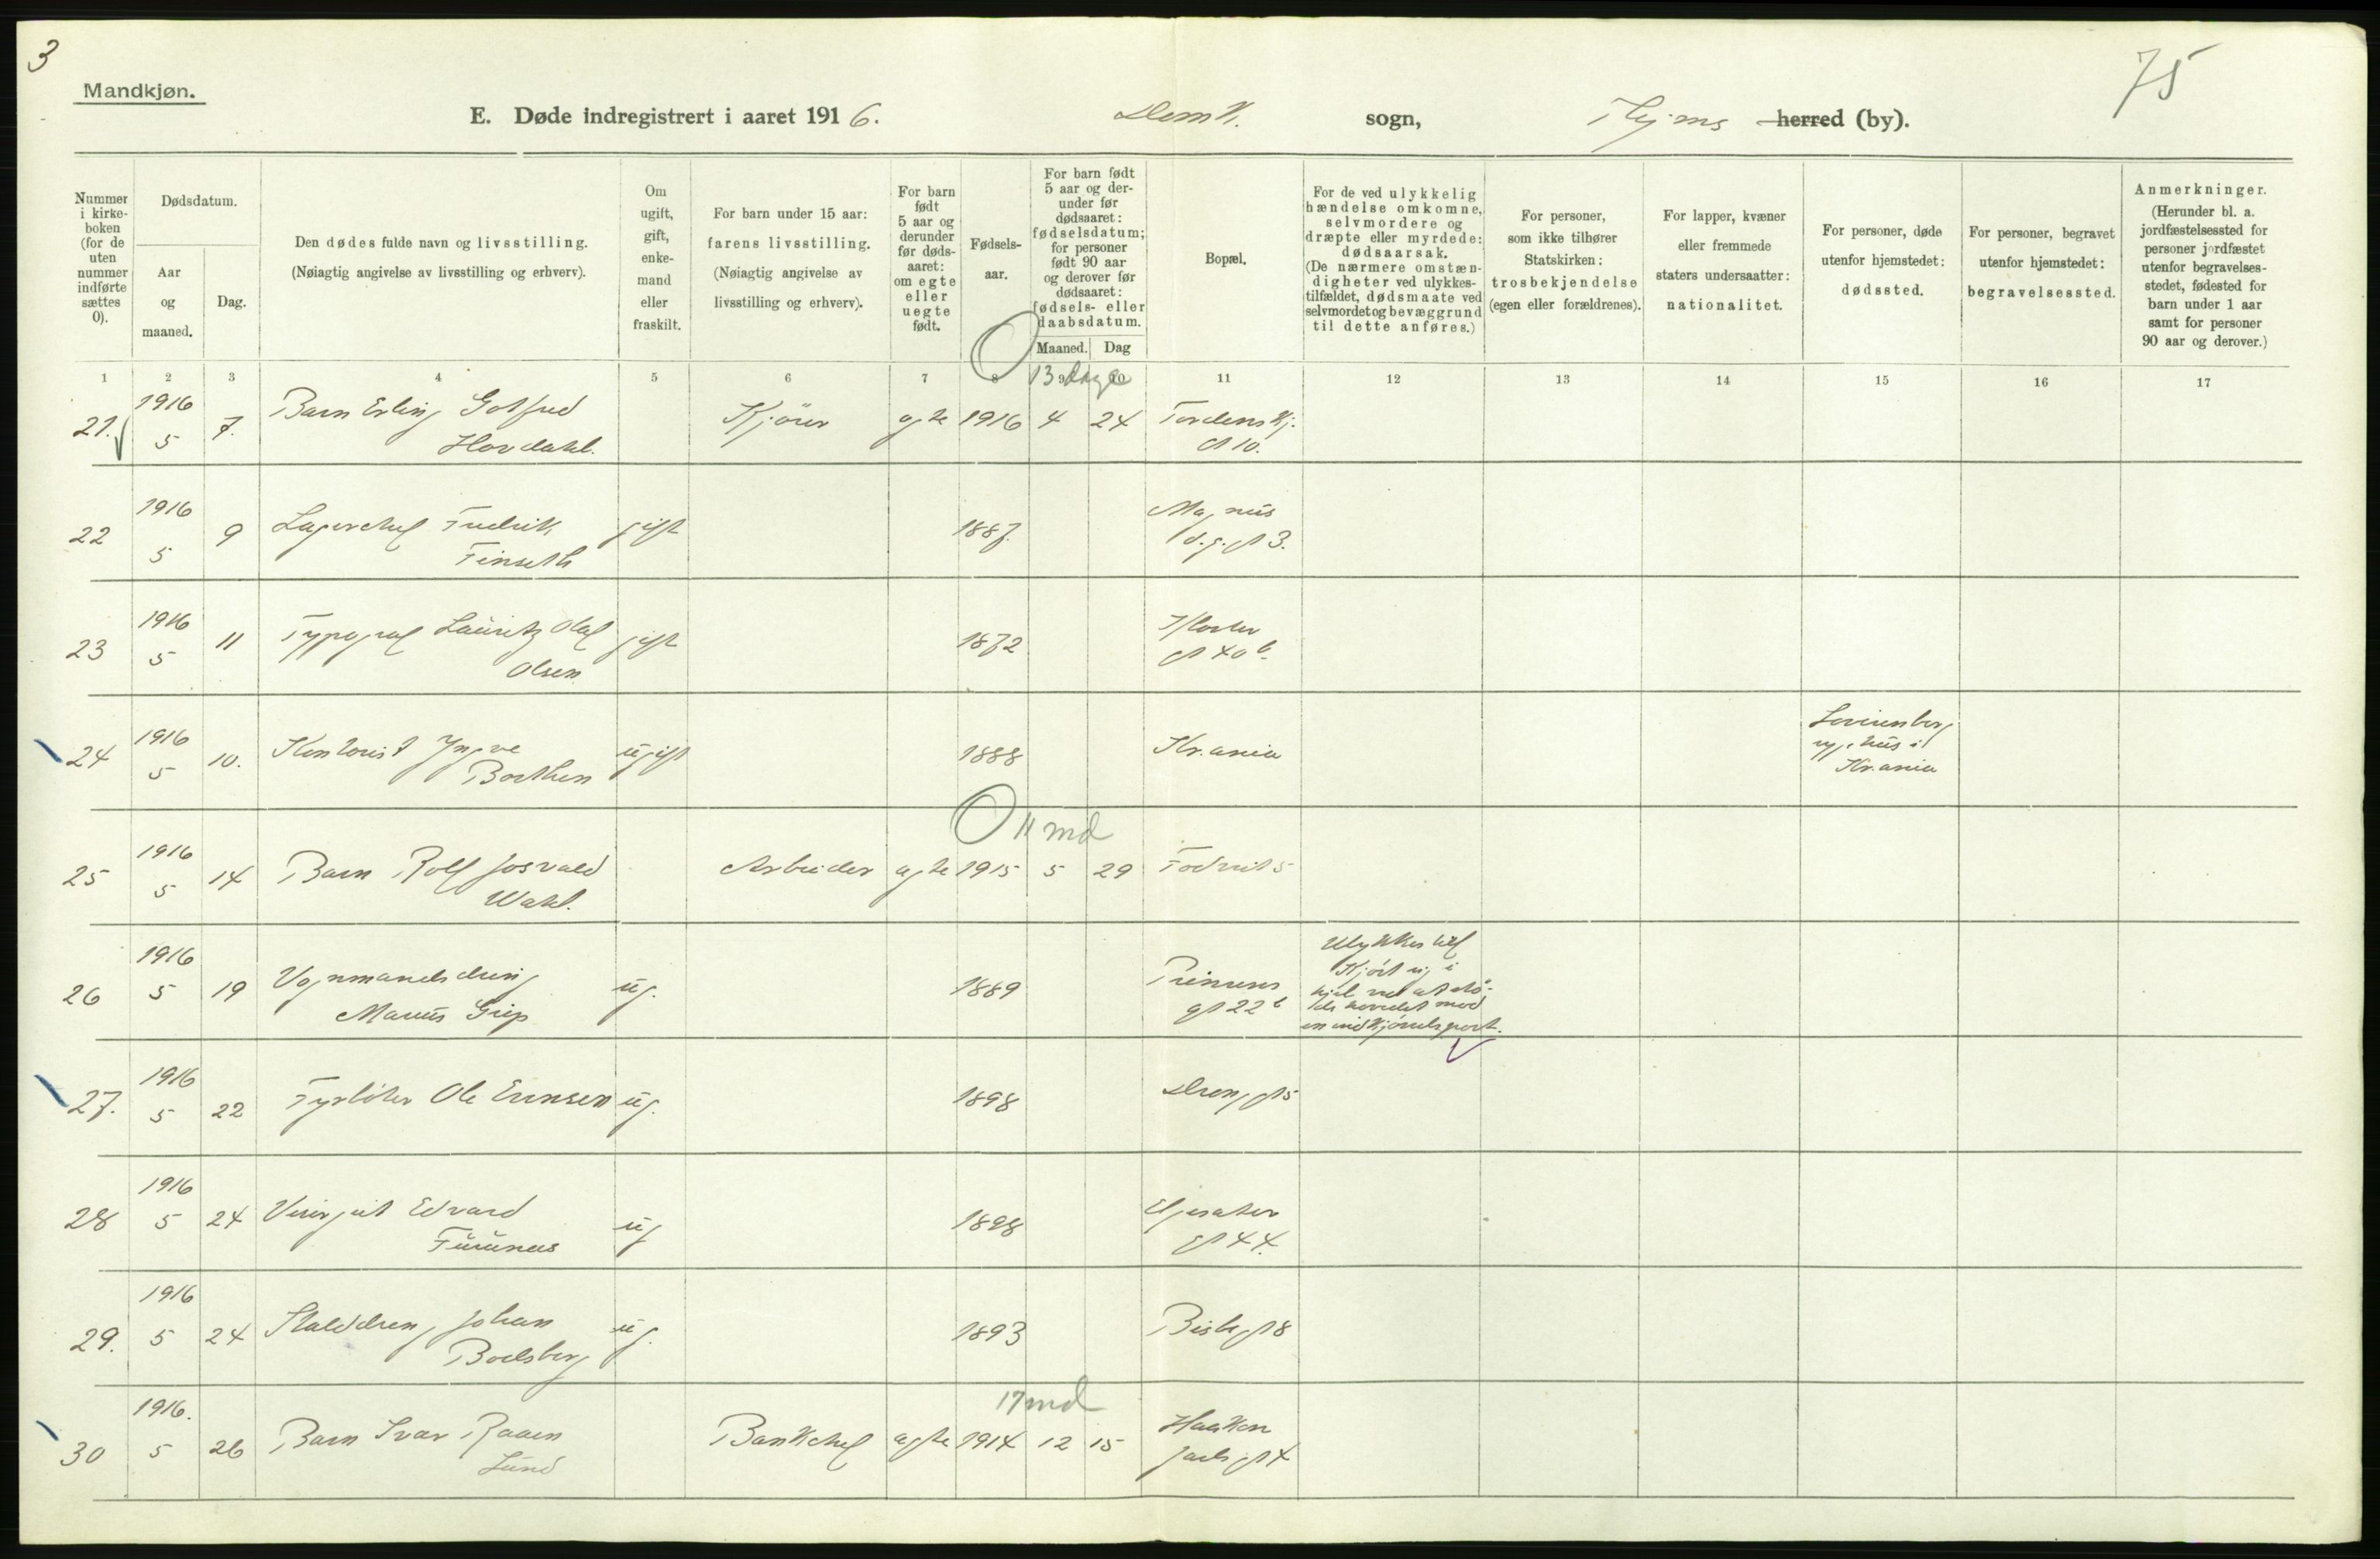 3
75
Mandkjøn.
E. Døde indregistrert i aaret 1916.
Domk. sogn,
Thjms herred (by).
Nummer i kirke-boken (for de uten nummer indførte sættes 0).
Dødsdatum.
Aar og maaned.
Dag.
Den dødes fulde navn og livsstilling.
(Nøiagtig angivelse av livsstilling og erhverv).
Om ugift, gift, enke-mand eller fraskilt.
For barn under 15 aar:
farens livsstilling.
(Nøiagtig angivelse av livsstilling og erhverv).
For barn født 5 aar og derunder før døds-aaret: om egte eller uegte født.
Fødsels-aar.
For barn født 5 aar og der-under før dødsaaret: fødselsdatum; for personer født 90 aar og derover før dødsaaret: fødsels- eller daabsdatum.
Maaned. Dag
Bopæl.
For de ved ulykkelig hændelse omkomne, selvmordere og dræpte eller myrdede: dødsaarsak.
(De nærmere omstæn-digheter ved ulykkes-tilfældet, dødsmaate ved selvmordet og bevæggrund til dette anføres.)
For personer, som ikke tilhører Statskirken: trosbekjendelse (egen eller forældrenes).
For lapper, kvæner eller fremmede staters undersaatter: nationalitet.
For personer, døde utenfor hjemstedet: dødssted.
For personer, begravet utenfor hjemstedet: begravelsessted.
Anmerkninger.
(Herunder bl. a. jordfæstelsessted for personer jordfæstet utenfor begravelses-stedet, fødested for barn under 1 aar samt for personer 90 aar og derover.)
1 2 3 4 5 6 7 8 9 10 11 12 13 14 15 16 17
13 dage
21. 1916 5 7. Barn Erling Gotfred Hovdahl. Kjörer egte 1916 4 24 Tordenskj. gt 10.
22 1916 5 9 Lagerchef Fredrik Finseth gift 1887. Magnus d.g. gt 3.
23 1916 5 11 Typograf Lauritz Olaf Olsen gift 1872 Kloster gt 40 b.
24 1916 5 10. Kontorist Yngve Borthen ugift 1888 Kr.ania Lovisenberg sygehus i Kr.ania
11 md
25 1916 5 14 Barn Rolf Josvald Wahl. Arbeider egte 1915 5 29
26 1916 5 19 Vognmandsdreng Marius Grip ug. 1889 Prinsens gt 22 b Ulykkestilf Kjört sig i hjel ved at stö-de hovedet mod en indkjörselsport.
27. 1916 5 22 Fyrböter Ole Evensen ug. 1898 Dron, gt 5
28 1916 5 24 Visergut Edvard Furunes ug 1898 Elgesæter gt 44.
29. 1916 5 24 Stalddreng Johan Boelsberg ug. 1893 Bispegt 8
17 md
30 1916. 5 26 Barn Ivar Raaen Lund Bankchef egte 1914 12 15 Haakon Jarls gt 4